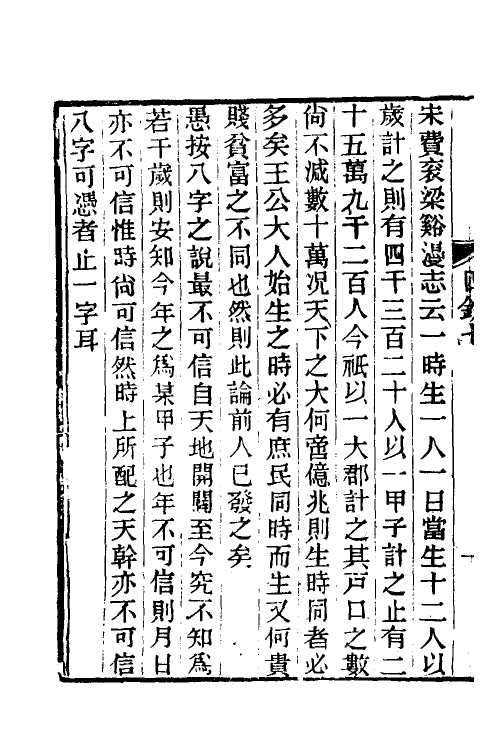 宋費袞梁谿漫志云一時生一人一日當生十二人以
歲計之則有四千三百二十人以一甲子計之止有二
十五萬九千二百人今祇以一大郡計之其戸口之數
尙不減數十萬况天下之大何啻億兆則生時同者必
多矣王公大人始生之時必有庶民同時而生又何貴
賤貧富之不同也然則此論前人已發之矣
愚按八字之說最不可信自天地開闢至今究不知爲
若干歲則安知今年之爲某甲子也年不可信則月日
亦不可信惟時尙可信然時上所配之天幹亦不可信
八字可憑者止一字耳